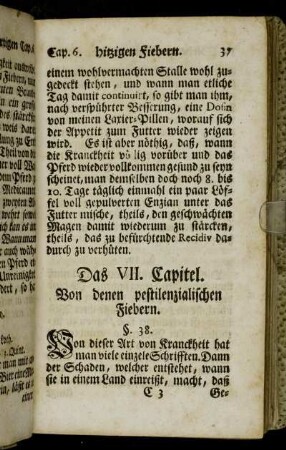 Cap. 6. hitzigen Fiebern. 37
einem wohlvermachten Stalle wohl zu-
gedeckt stehen, und wann man etliche
Tag damit continuirt, so gibt man ihm,
nach verspührter Besserung, eine Dosin
von meinen Laxier-Pillen, worauf sich
der Appetit zum Futter wieder zeigen
wird. Es ist aber nöthig, daß, wann
die Kranckheit völlig vorüber und das
Pferd wieder vollkommen gesund zu seyn
scheinet, man demselben doch noch 8. bis
10. Tage täglich einmahl ein paar Löf-
fel voll gepulverten Enzian unter das
Futter mische, theils, den geschwächten
Magen damit wiederum zu stärcken,
theils, das zu befürchtende Recidiv da-
durch zu verhüten.
Das VII. Capitel.
Von denen pestilenzialischen
Fiebern.
§. 38.
Von dieser Art von Kranckheit hat
man viele einzele Schrifften. Dann
der Schaden, welcher entstehet, wann
sie in einem Land einreißt, macht, daß
C 3 Ge-